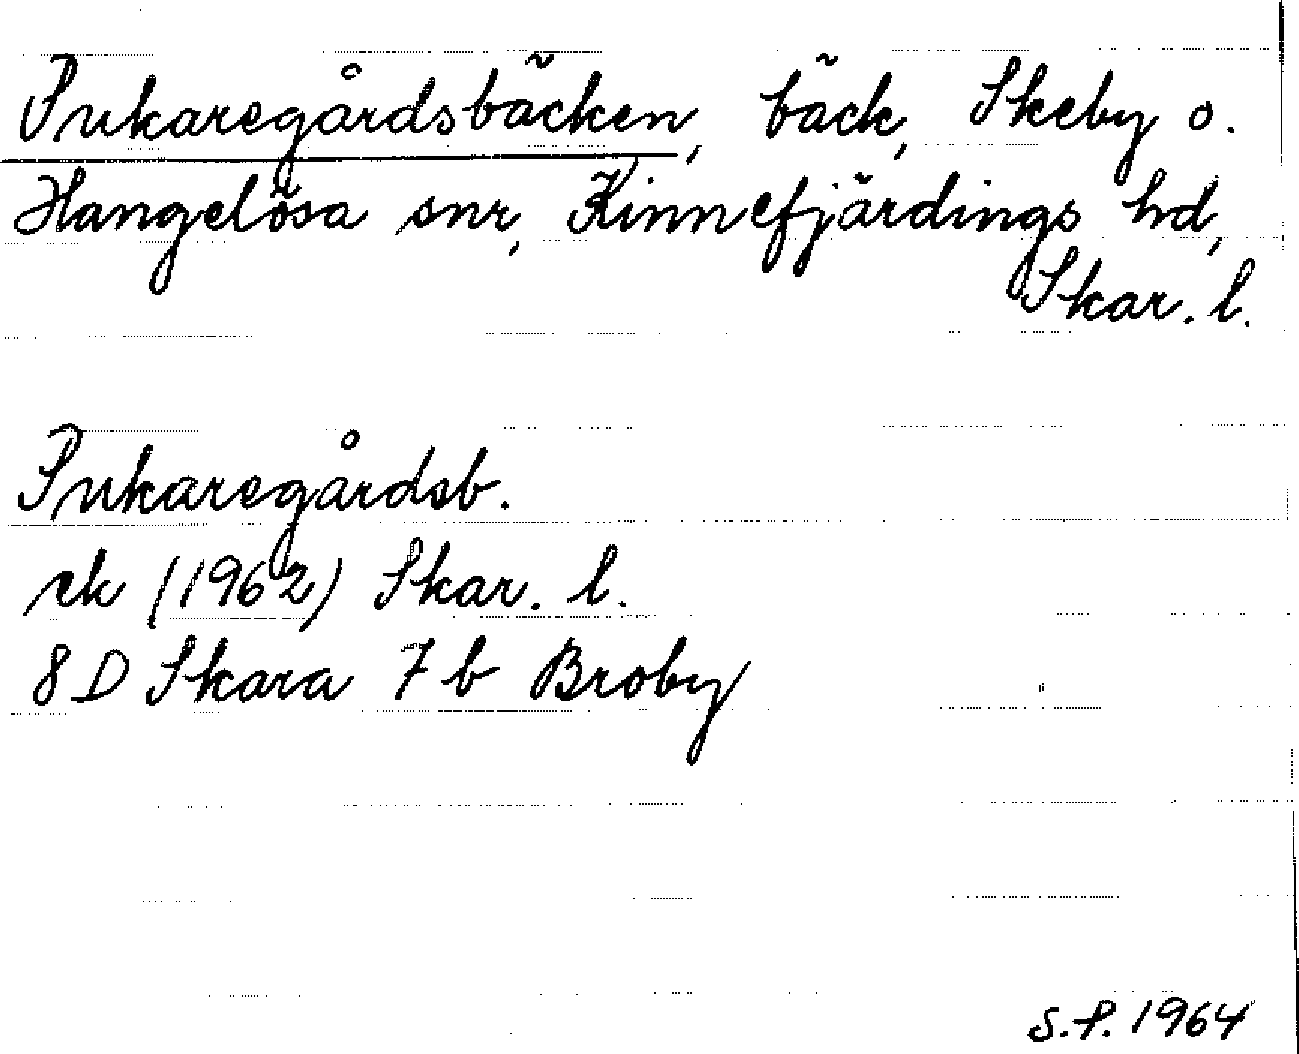 Pukaregårdsbäcken, bäck, Skeby o.
Hangelösa snr, Kinnefjärdings hd,
Skar. l.
Pukaregårdsb.
ek (1962) Skar. l.
8D Skara 7b Broby
S.P. 1964